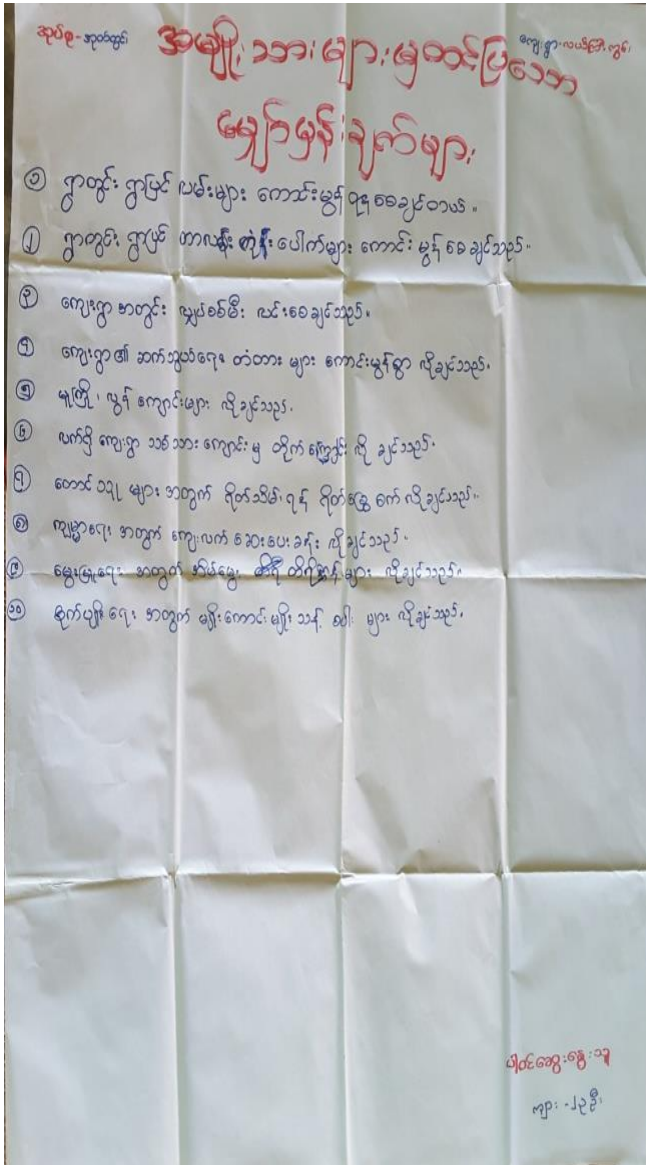 အုပ်စု-အုတ်တွင်း
ကျေးရွာ-လယ်ကြီးကွင်း
အမျိုးသားများမှတင်ပြသော
မျှော်မှန်းချက်များ
၁ ရွာတွင်း ရွာပြင် လမ်းများ ကောင်းမွန် စေချင်တယ်။
၂ ရွာတွင်း ရွာပြင် တာလန်း တုံးပေါက်များ ကောင်း မွန် စေ ချင်သည်။
၃ ကျေးရွာ အတွင်း လျှပ်စစ်မီး လင်းစေချင်သည်။
၄ ကျေးရွာ၏ ဆက်သွယ်ရေး တံတား များ ကောင်းမွန်စွာ လိုချင်သည်။
၅ မူကြို၊ လွန် ကျောင်းများ လိုချင်သည်။
၆ လက်ရှိ ကျေးရွာ သစ်သားကျောင်းမှ တိုက်ကျောင်း လို ချင်သည်။
၇ တောင်သူ များ အတွက် ရိတ်သိမ်းရန် ရိတ်ခြွေ စက် လိုချင်သည်။
၈ ကျမ္မာရေး အတွက် ကျေးလက် ဆေးပေးခန်း လိုချင်သည်။
၉ မွေးမြူရေး အတွက် အိမ်မွေး တိရိစ္ဆာန်များ လိုချင်သည်။
၁၀ စိုက်ပျိုးရေး အတွက် မျိုးကောင်းမျိုးသန့် စပါး များ လိုချင်သည်။
ပါဝင်ဆွေးနွေးသူ
ကျား -၂၃ဦး